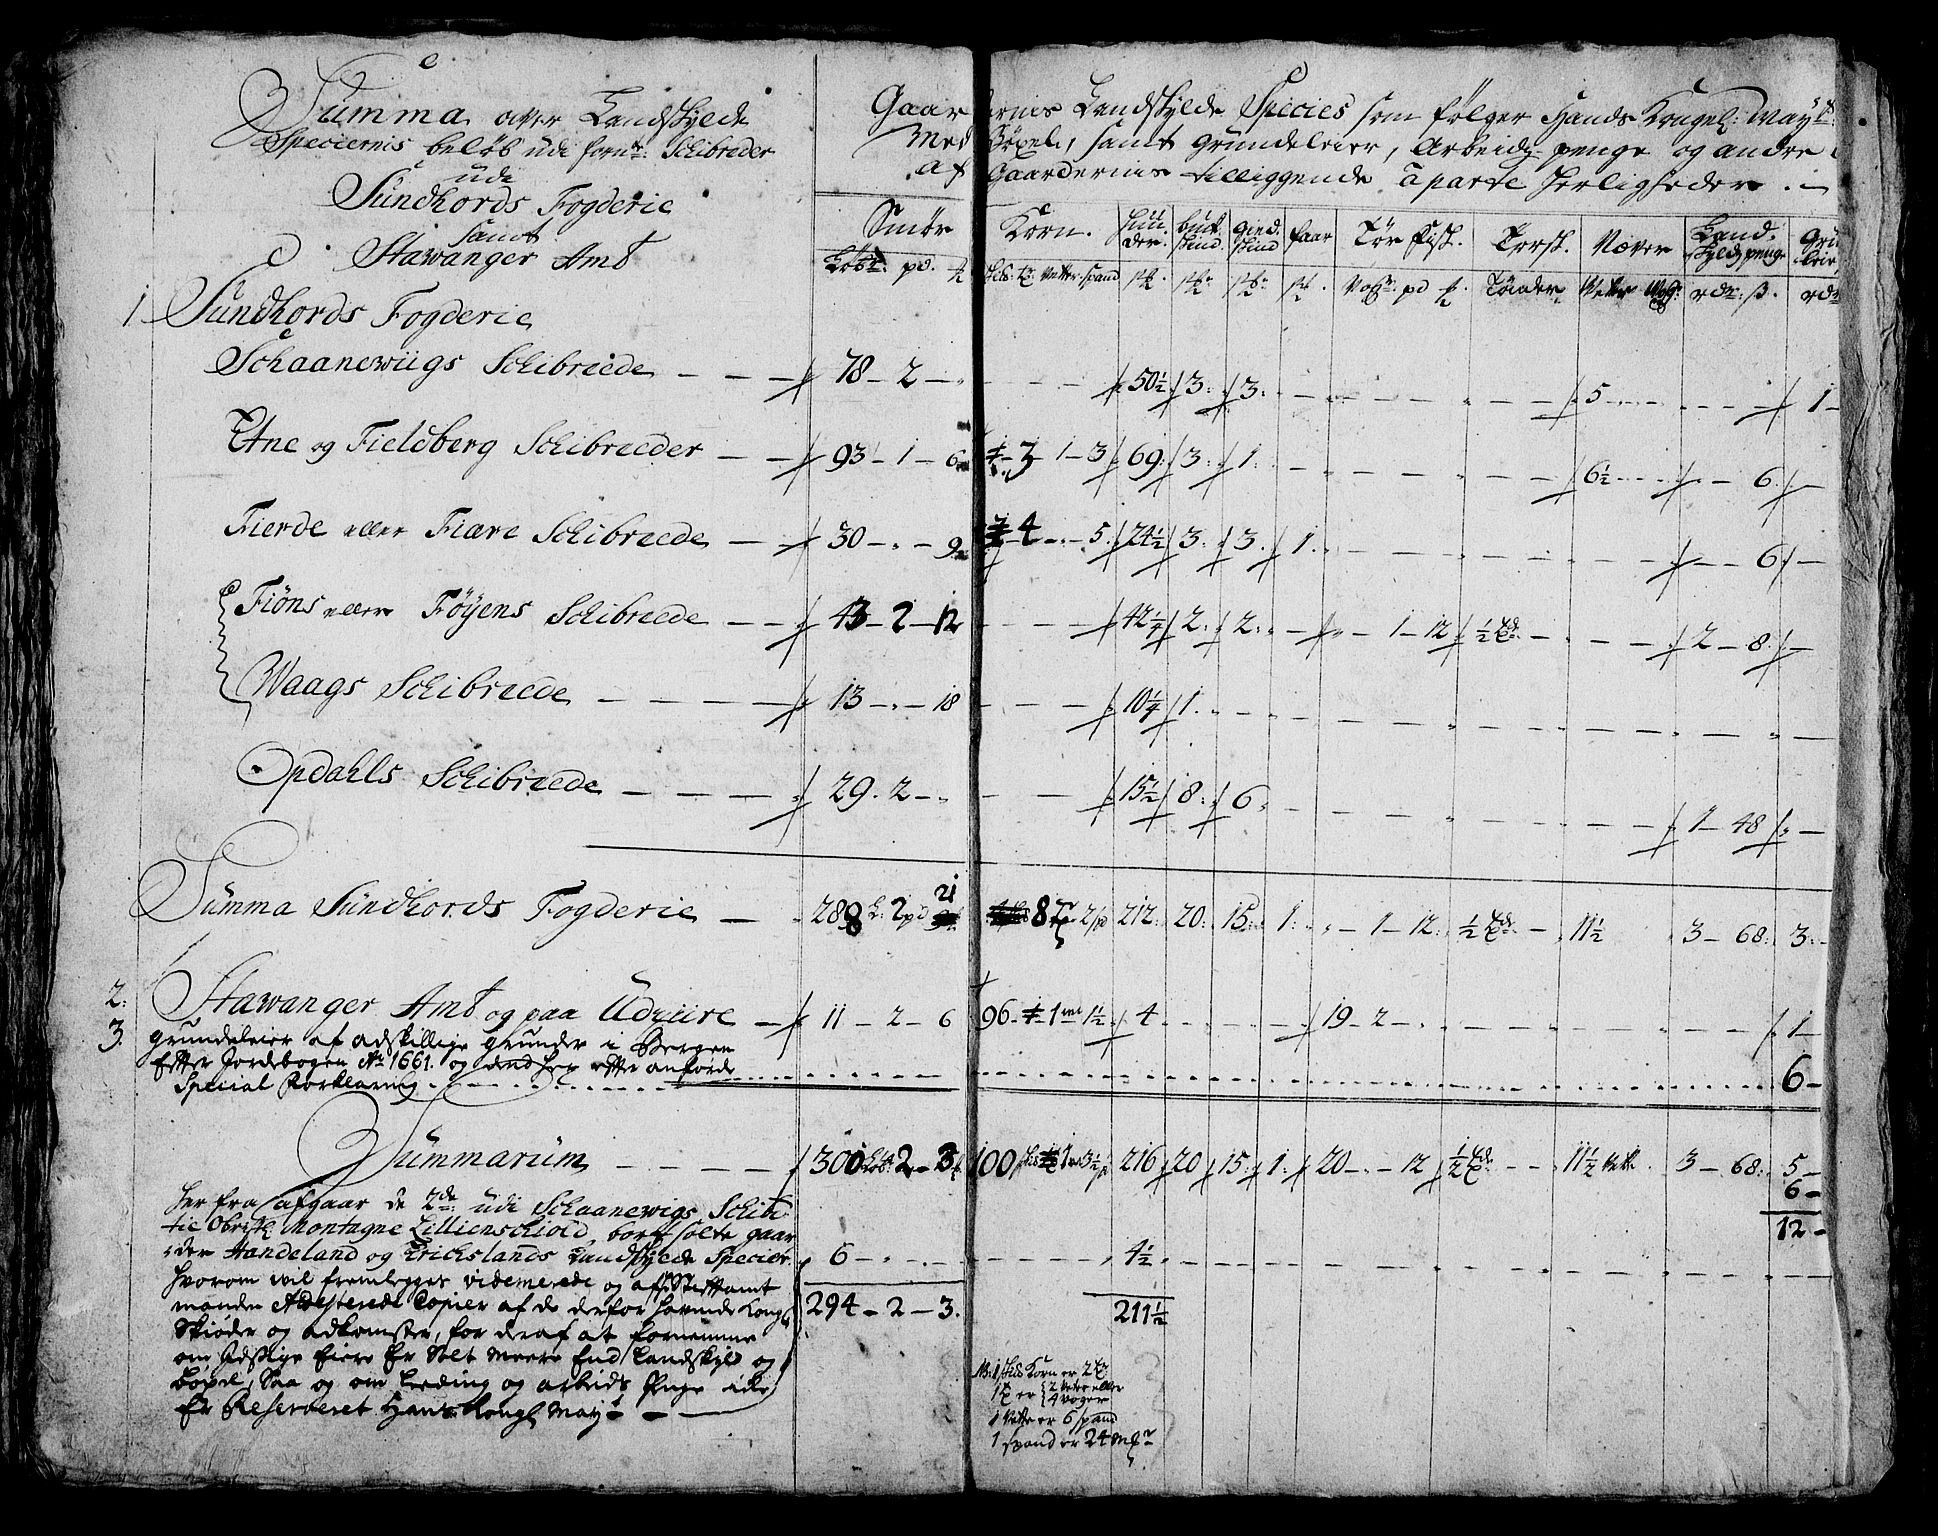 Summa over Landskylds
Speciernis beløb udi fornte: Schibreder
udi
Sundhords Fogderie
samt
Stawanger Amt
Gaardernis Landskylds Species som følger Hands Kongel: May:
Med Bøxel, samt Grundeleier, Arbeids penge og andre
af Gaardernis tilliggende aparte Herligheder.
Smør Korn. Huuder. buckskind. Giedskind faar Tør Fisk. Torsk. Næver Landskylds penge Grundleie
Løb: pd. Tønder Vetter Wog:
1 Sundhords Fogderie
Schaanewiigs Schibreede 78 - 2 - 50½ 3: 3: 5 1
Etne og Fieldberg Schibreeder 93 - 1 - 6 3 1 - 3 69: 3: 1: 6½ 6
Fierde eller Fiære Schibreede 30 - - 9 4 - 5. 24½ 3: 3. 1. 6
Fiöns eller Föyens Schibreede 43 - 2 - 12 42¼ 2: 2: 1 - 12 ½ 2 - 8
Waags Schibreede 13 - - 18 10¼ 1.
Opdahls Schibreede 29. 2 - 15½ 8. 6 1 - 48
Summa Sundhords Fogderie 288 L: 2 pd 21 8 2 212: 20: 15: 1: 1 - 12: ½ 11½ 3 - 68: 3:
2: Stawanger Amt og paa Udziire 11 - 2 - 6 96 - 1 1½ 4 19 - 2 1
3. grundeleier af adskillige grunde i Bergen
Efter Jordebogen Ao 1661. og dend her efter anførde
Special Forklaring 6
Summarum 300 2 - 3 100 1 3½ 216 20 15: 1: 20 - - 12 ½ 11½ 3 - 68: 5
6
12
Her fra afgaar de 2de udi Schaanewigs Schibr
tie Obriste Montagne Lillienschiold, bortsolte gaar
der Handeland og Erichslands Landskylds Species 6 4½
hvorom wil fremlegges videmerede og af Stiftamt
manden Attesterede Copier af de derfor havende Kongl 294 - 2 - 3. 211½
Skiøder og adkomster, for deraf at fornemme
om Idsige Eiere Er Solt meere End Landskyld og
Bøxel, Saa og om Leding og arbeids Penge icke
Er Reserveret Hans Kongl May:t
NB: 1 Korn er 2
1 er 2 Veter eller
4 voger
1 Vette er 6 spand
1 spand er 24